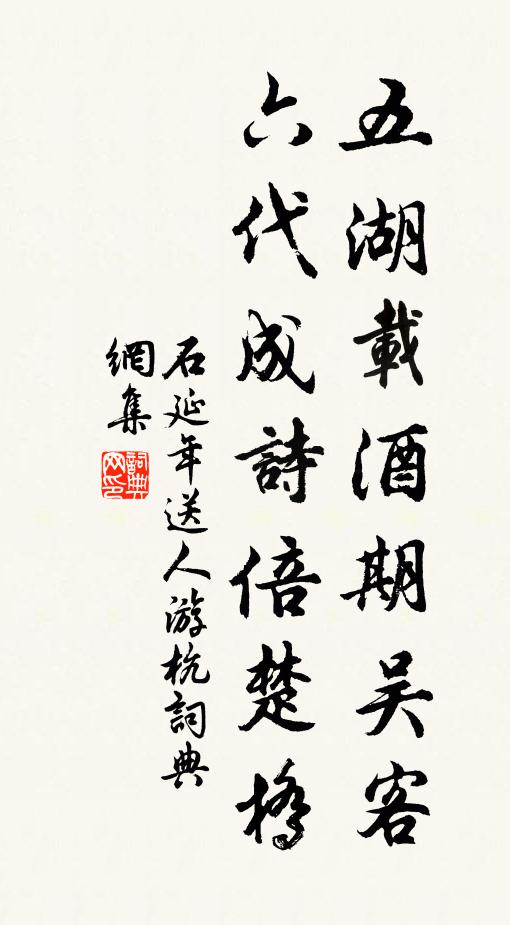 五湖載酒期吴客
六代成詩倍楚橋
石延年送人游杭詞典
網集
詞典
网印